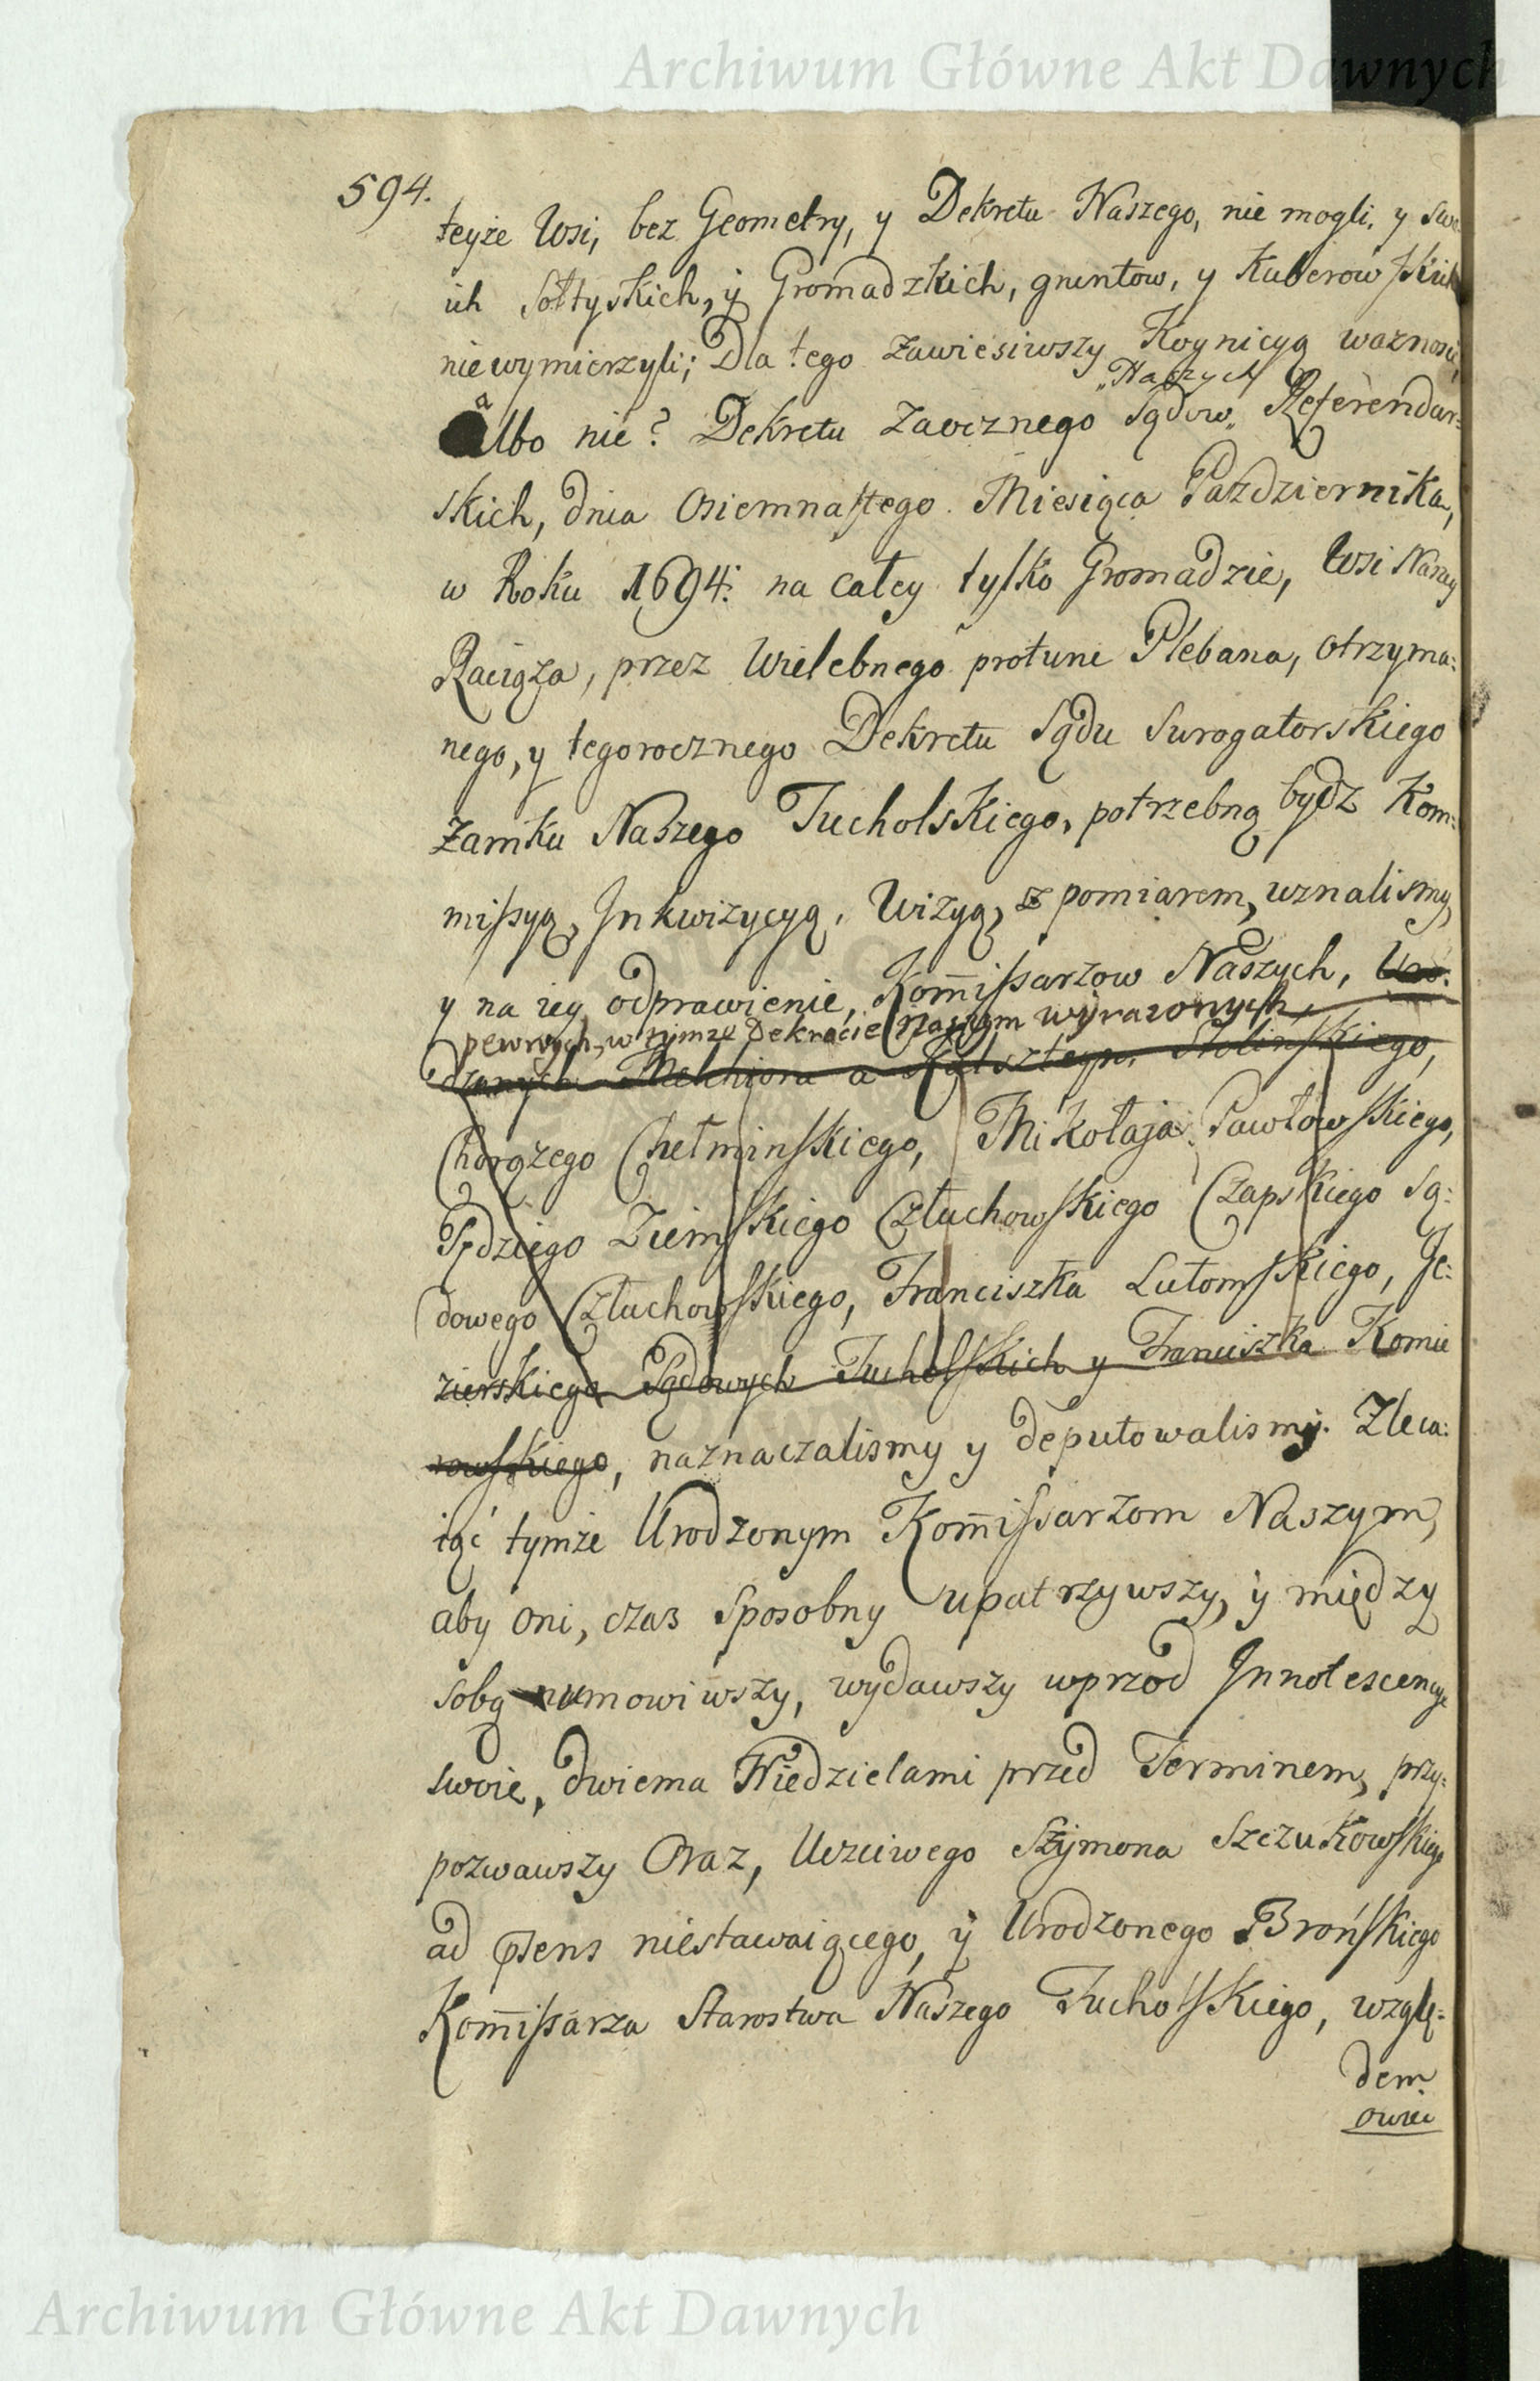 Archiwum Główne Akt Dawnych
594.
teyże Wsi, bez Geometry, y Dekretu Naszego, nie mogli, y swo
ich Sołtyskich, y Gromadzkich, gruntow, y Kuberowskich
niewymierzyli; Dla tego zawiesiwszy Kognicyą waznosci,
„Naszych
albo nie? Dekretu Zaocznego Sądow„ Referendar:
skich, dnia Osiemnastego Miesiąca Pazdziernika,
w Roku 1694: na całey tylko Gromadzie, Wsi Naszey
Raciąża, przez Wielebnego protunc Plebana, otrzyma:
nego, y tegorocznego Dekretu Sądu Surogatorskiego
Zamku Naszego Tucholskiego, potrzebną bydz Kom:
missyą, Inkwizycyą, Wizyą, z pomiarem, uznalismy,
y na iey odprawienie, Kommissarzow Naszych, Uro:
pewnych, w tymze Dekrecie Naszym wyrazonych,
dzonych Melchiora a
Chorązego Chełminskiego, Mikołaja Pawłowskiego,
Sędziego Ziemskiego Człuchowskiego Czapskiego Są:
dowego Człuchowskiego, Franciszka Lutomskiego, Je:
zierskiego Sądowych Tucholskich y Franciszka Komie
rowskiego, naznaczalismy y deputowalismy. Zleca:
iąc tymże Urodzonym Kommissarzom Naszym,
aby oni, czas sposobny upatrzywszy, y między
sobą umowiwszy, wydawszy wprzod Innotescencye
swoie, dwiema Niedzielami przed Terminem, przy:
pozwawszy Oraz, Uczciwego Szymona Szczukowskiego
ad prens niestawaiącego, y Urodzonego Brońskiego
Kommissarza Starostwa Naszego Tucholskiego, wzglę:
dem
owiec
Archiwum Główne Akt Dawnych